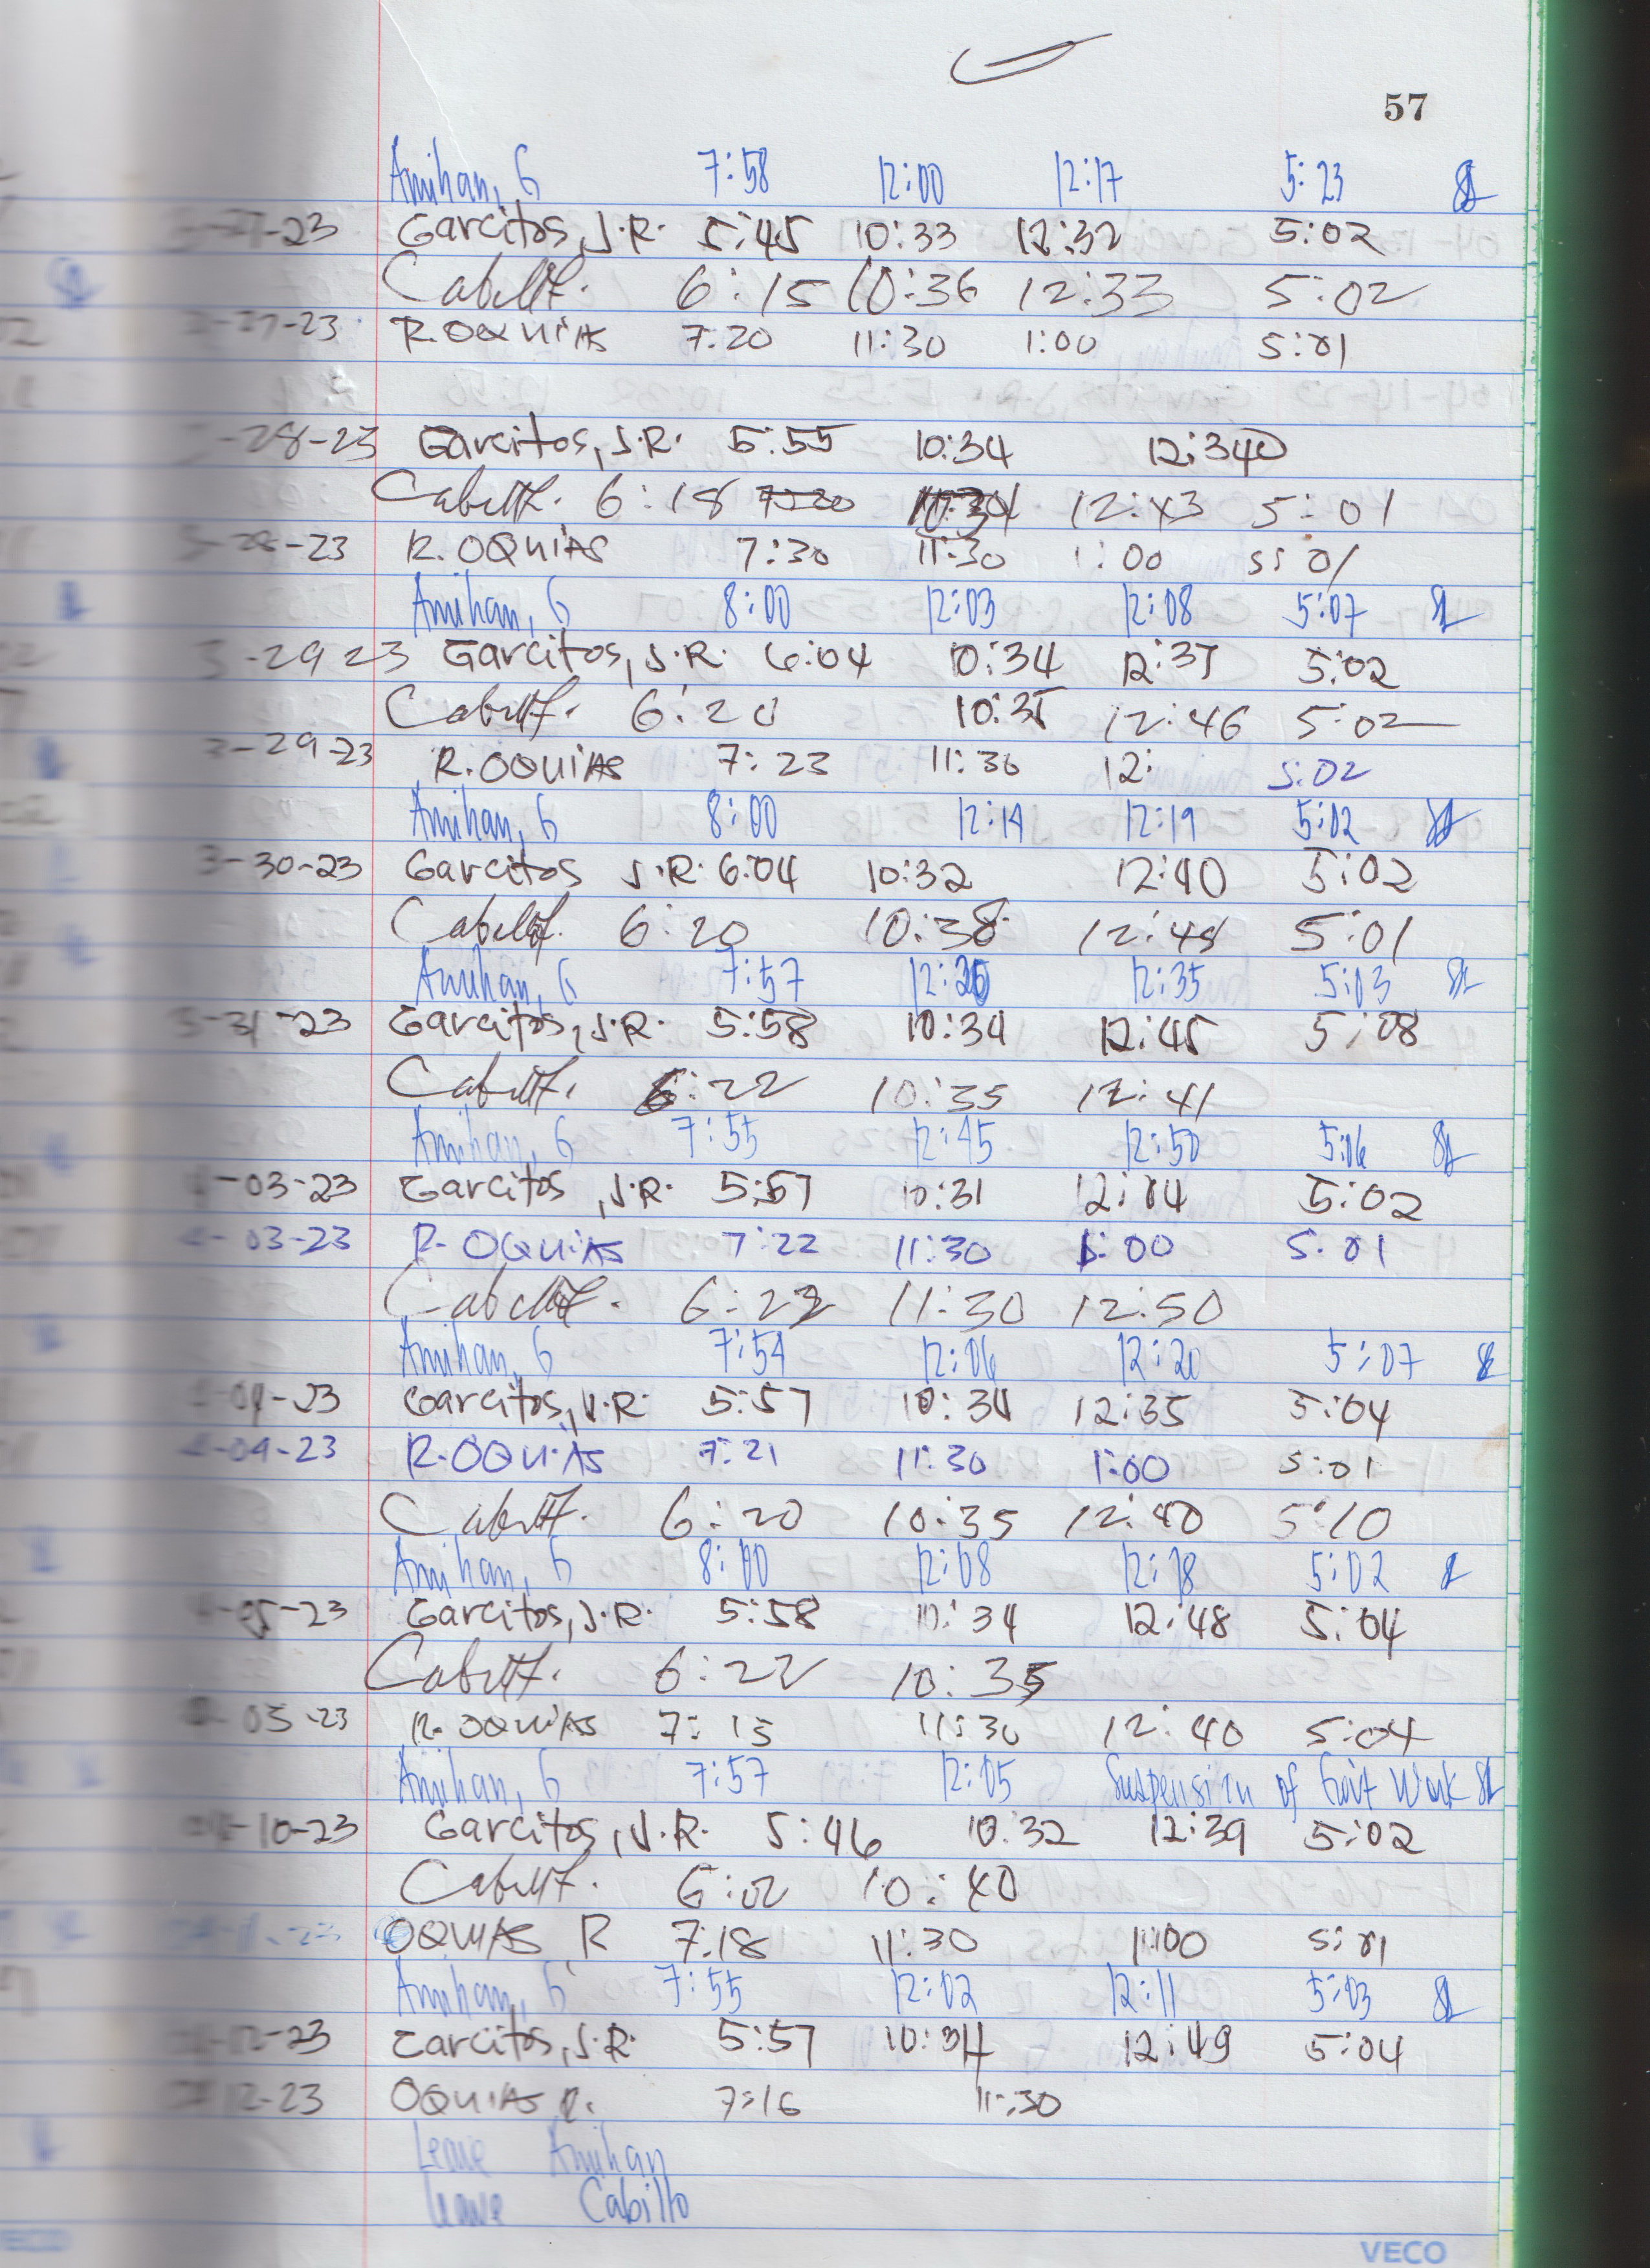 57
Amihan, G 7:58 12:00 12:17 5:23
-27-23 Garcitos, J.R. 5:45 10:33 12:32 5:02
6:15 10:36 12:33 5:02
-27-23 R. OQUIAS 7:20 11:30 1:00 5:01
-28-23 Garcitos, J.R. 5:55 10:34 12:340
6:18 7:20 10:34 12:43 5:01
3-28-23 R. OQUIAS 7:30 11:30 1:00 5:01
Amihan, G 8:00 12:03 12:08 5:07
3-29 23 Garcitos, J.R. 6:04 10:34 12:37 5:02
6:20 10:35 12:46 5:02
3-29-23 R. OQUIAS 7:23 11:30 12: 5:02
Amihan, G 8:00 12:14 12:19 5:02
3-30-23 Garcitos J.R. 6:04 10:32 12:40 5:02
6:20 10:38 12:48 5:01
Amihan, G 7:57 12:35 5:03
3-31-23 Garcitos, J.R. 5:58 10:34 12:45 5:08
6:22 10:35 12:41
Amihan, G 7:55 12:45 12:50 5:06
4-03-23 Garcitos, J.R. 5:57 10:31 12:04 5:02
4-03-23 R. OQUIAS 7:22 11:30 1:00 5:01
6:22 11:30 12:50
Amihan, G 7:54 12:06 12:20 5:07
4-04-23 Garcitos, J.R. 5:57 10:34 12:35 5:04
4-04-23 R. OQUIAS 7:21 11:30 1:00 5:01
6:20 10:35 12:40 5:10
Amihan, G 8:00 12:08 12:18 5:02
4-05-23 Garcitos, J.R. 5:58 10:34 12:48 5:04
6:22 10:35
05-23 R. OQUIAS 7:15 11:30 12:40 5:04
Amihan, G 7:57 12:05 Suspension of Gov't Work
04-10-23 Garcitos, J.R. 5:46 10:32 12:39 5:02
6:02 10:40
OQUIAS R 7:18 11:30 1:00 5:01
Amihan, G 7:55 12:02 12:11 5:03
-12-23 Garcitos, J.R. 5:57 10:34 12:49 5:04
12-23 OQUIAS R. 7:16 11:30
Leave Amihan
Leave Cabillo
VECO